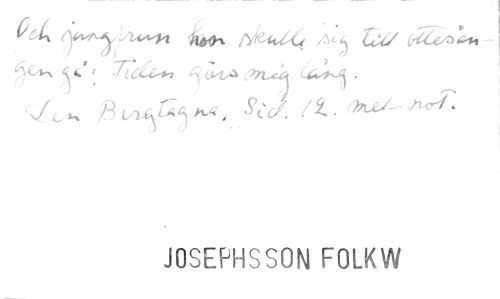 Och jungfrun hon skulle sig till ottesån-
gen gå; Tiden görs mig lång.
Den Bergtagna. Sid. 12. mel-not.
JOSEPHSSON FOLKW